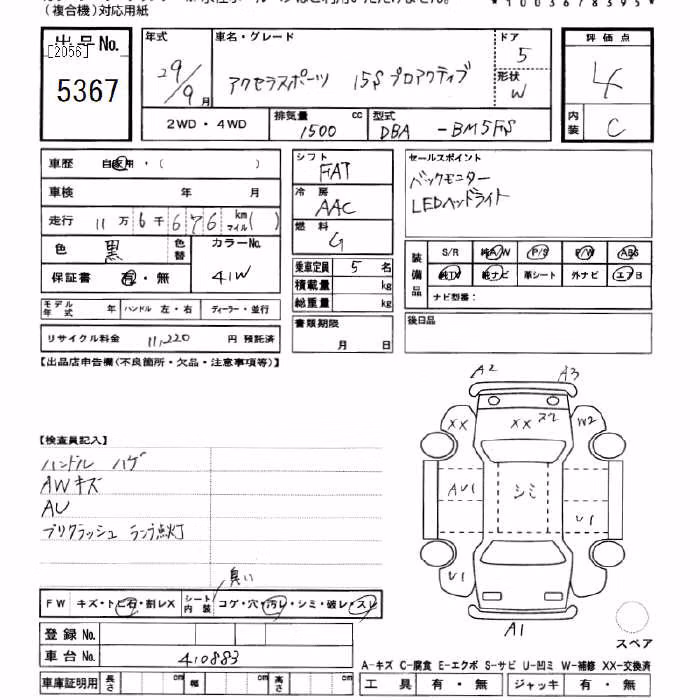 (複合機)対応用紙
*1003678395*
出品No.
[2056]
5367
年式 29/9月
車名・グレード
アクセラスポーツ 15S プロアクティブ
ドア 5
形状 W
評価点 4
内装 C
2WD・4WD
排気量 1500 cc
型式 DBA -BM5FS
車歴 自家用・( )
車検 年 月
走行 11万6千676 km マイル( )
色 黒 色替
カラーNo. 41W
保証書 有・無
モデル年式 年 ハンドル 左・右 ディーラー・並行
リサイクル料金 11,220 円 預託済
シフト FAT
冷房 AAC
燃料 G
乗車定員 5 名
積載量 kg
総重量 kg
書類期限 月 日
セールスポイント
バックモニター
LEDヘッドライト
装備品
S/R 純A/W P/S P/W ABS
純TV 純ナビ 革シート 外ナビ エアB
ナビ型番:
後日品
【出品店申告欄(不良箇所・欠品・注意事項等)】
【検査員記入】
ハンドル ハゲ
AWキズ
AU
プリクラッシュ ランプ点灯
臭い
FW キズ・トビ石・割レX シート内装 コゲ・穴・汚レ・シミ・破レ・スレ
登録No.
車台No. 410883
車庫証明用 長さ cm 幅 cm 高さ cm
A2
A3
XX
XX
W2
AU1
シミ
U1
U1
A1
スペア
A-キズ C-腐食 E-エクボ S-サビ U-凹ミ W-補修 XX-交換済
工具 有・無 ジャッキ 有・無